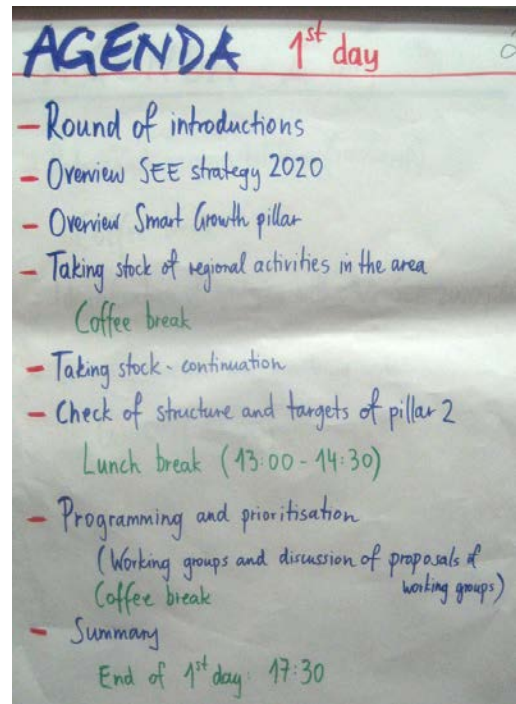 AGENDA 1st day
- Round of introductions
- Overview SEE strategy 2020
- Overview Smart Growth pillar
- Taking stock of regional activities in the area
Coffee break
- Taking stock - continuation
- Check of structure and targets of pillar 2
Lunch break (13:00 - 14:30)
- Programming and prioritisation
(Working groups and discussion of proposals of
working groups)
Coffee break
- Summary
End of 1st day: 17:30